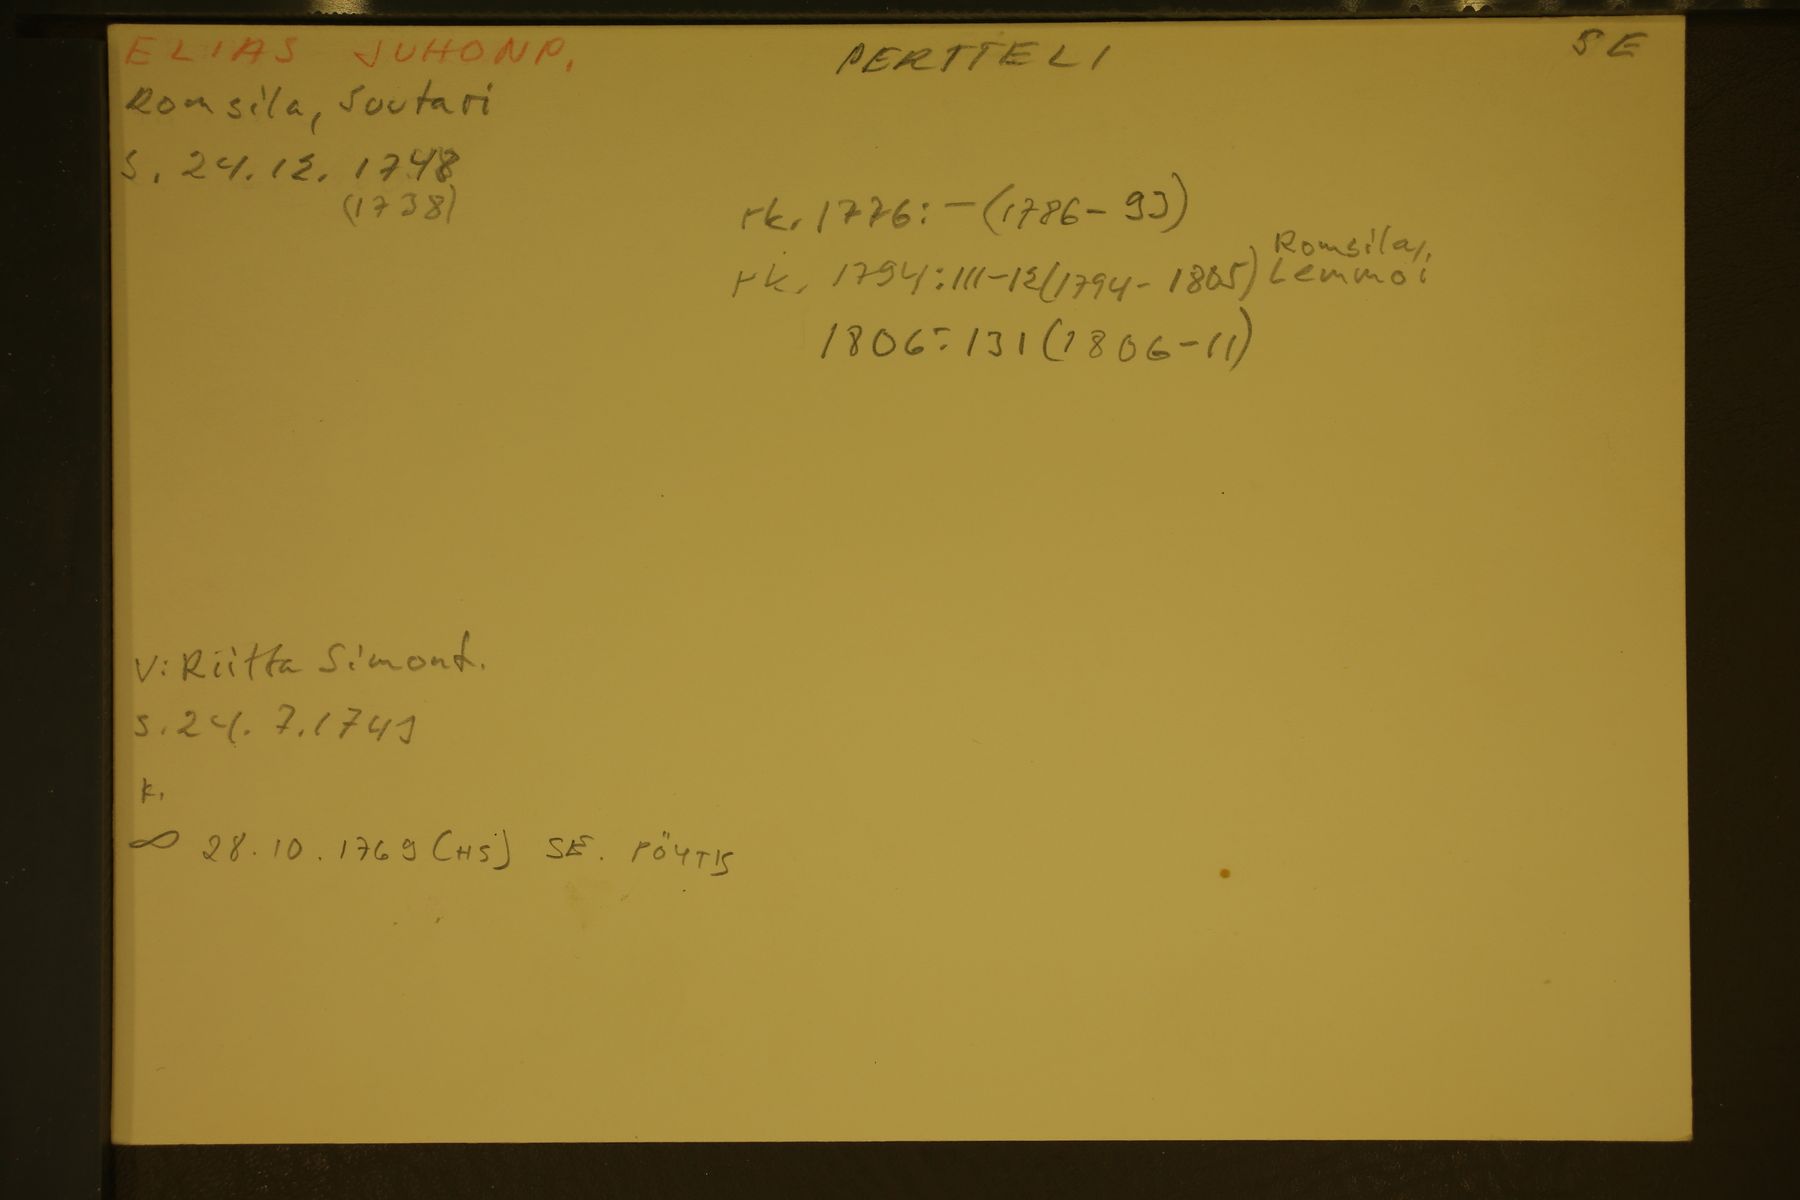 ELIAS JUHONP. PERTTELI SE
Romsila, Suutari
S. 24.12. 1748
(1738)
rk. 1776: -(1786-93)
rk. 1794: III-12(1794-1805) Romsila,
Lemmoi
1806: 131 (1806-11)
V: Riitta Simont.
s. 24. 7. 1743
k.
∞ 28.10.1769 (HS) SE. PÖYTIS